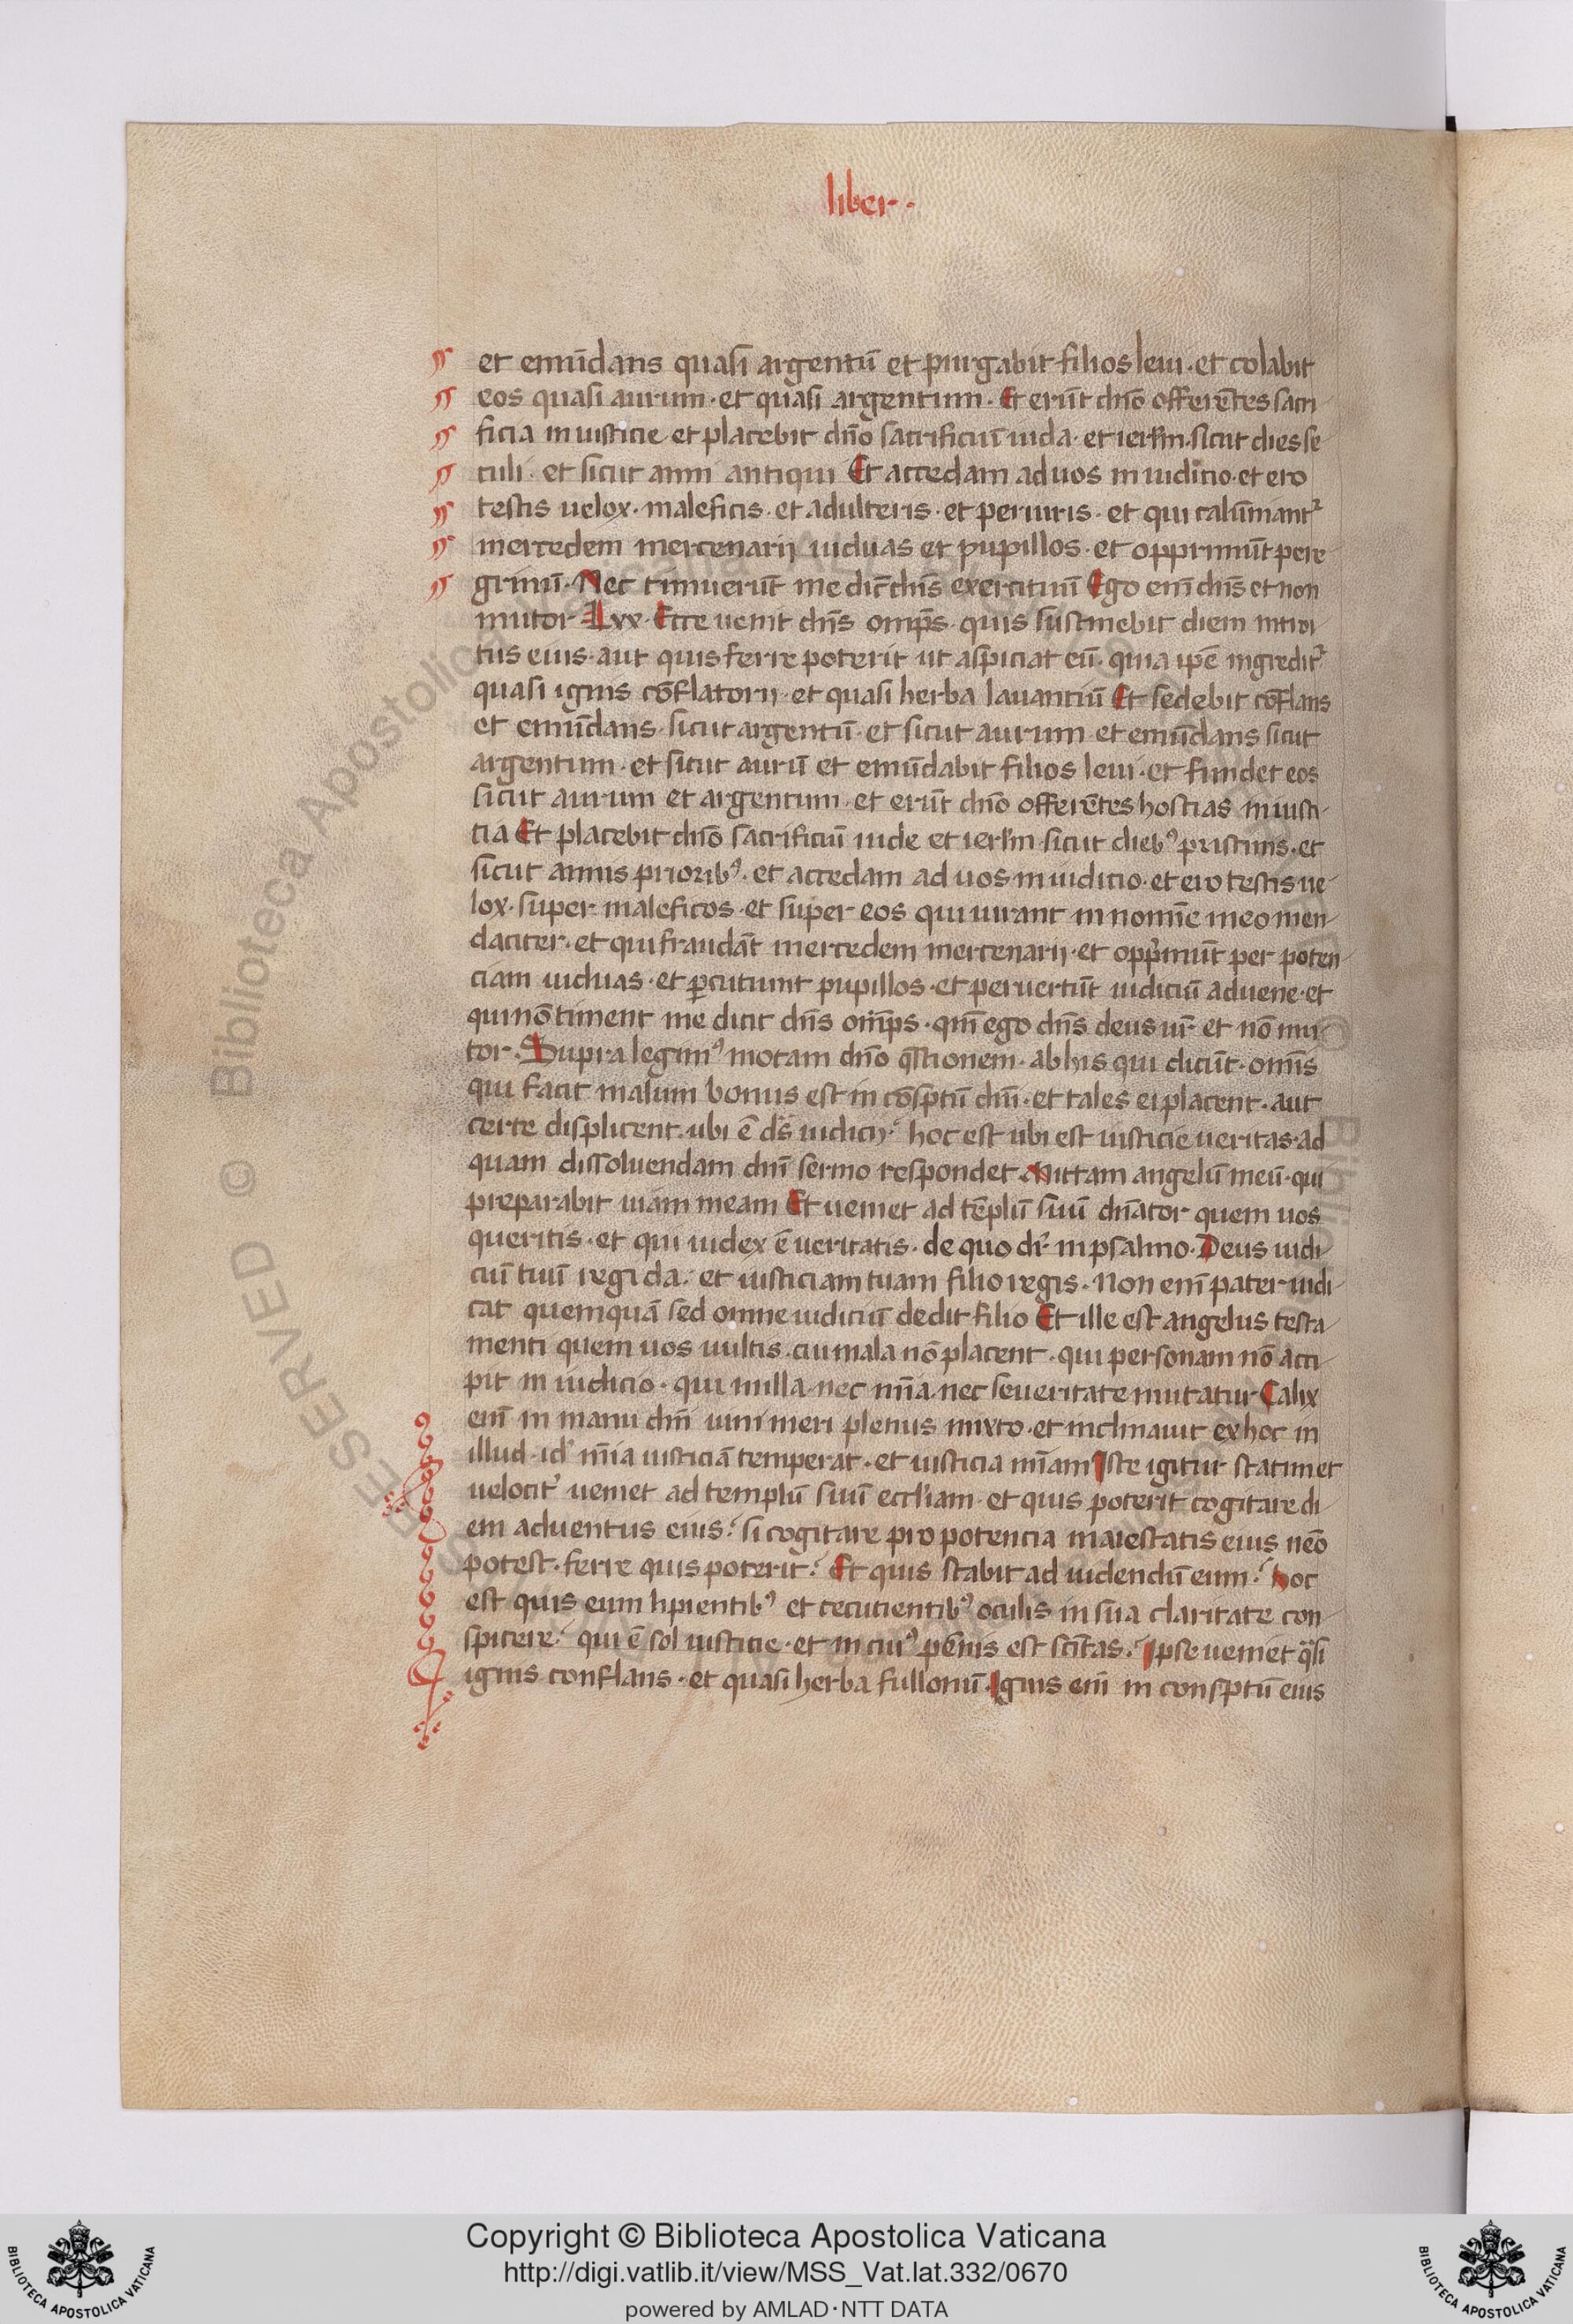 liber·
et emūdans quasi argentū et purgabit filios leui· et colabit
eos quasi aurum· et quasi argentum· Et erūt dño offerētes sacri
ficia in iusticie et placebit dño sacrificiū iuda· et ierl̄m· sicut dies se
culi· et sicut anni antiqui Et accedam ad uos in iudicio· et ero
testis uelox· maleficis· et adulteris· et periuris· et qui calūmiant᷑
mercedem mercenarij uiduas et pupillos· et opprimūt pere
grinū· Nec timuerūt me dic̄ dñs exercituū Ego eni̅ dñs et non
mutor· Lxx· Ecce uenit dñs omp̄s· quis sustinebit diem introi
tus eius· aut quis ferre poterit ut aspiciat eū· quia ip̄e ingredit᷑
quasi ignis cōflatorij· et quasi herba lauantiū Et sedebit cōflans
et emūdans· sicut argentū· et sicut aurum· et emūdans sicut
argentum· et sicut aurū et emūdabit filios leui· et fundet eos
sicut aurum et argentum· et erūt dño offerētes hostias in iusti
tia Et placebit dño sacrificiū iude et ierl̄m· sicut dieb⁹ pristinis· et
sicut annis priorib⁹· et accedam ad uos in iudicio· et ero testis ue
lox· super maleficos· et super eos qui iurant in nomīe meo men
daciter· et qui fraudāt mercedem mercenarij· et opp̄mūt per poten
ciam uiduas· et p̄cutiunt pupillos· et peruertūt iudiciū aduene· et
qui nō timent me dicit dñs omp̄s· qm̄ ego dñs deus ur̄ et nō mu
tor· Supra legim⁹ motam dño q̄stionem· ab his qui dicūt· omīs
qui facit malum bonus est in cōsptū dni̅· et tales ei placent· aut
certe displicent· ubi ē ds̄ iudicij? hoc est ubi est iusticie ueritas· ad
quam dissoluendam dni̅ sermo respondet· Mittam angelū meū· qui
preparabit uiam meam Et ueniet ad tēplū suū dn̄ator quem uos
queritis· et qui iudex ē ueritatis· de quo dr̄· in psalmo· Deus iudi
ciū tuū regi da· et iusticiam tuam filio regis· Non eni̅ pater iudi
cat quemquā sed omne iudiciū dedit filio Et ille est angelus testa
menti quem uos uultis· cui mala nō placent· qui personam nō acci
pit in iudicio· qui nulla nec mi̅a· nec seueritate mutatur· Calix
eni̅ in manu dni̅ uini meri plenus mixto· et inclinauit ex hoc in
illud· id̕ mi̅a iusticiā temperat· et iusticia mi̅am Iste igitur statim et
uelocit᷑ ueniet ad templū suū eccl̄iam· et quis poterit cogitare di
em aduentus eius? si cogitare pro potencia maiestatis eius nēo
potest· ferre quis poterit? Et quis stabit ad uidendū eum? hoc
est quis eum lipientib⁹ et cecucientib⁹ oculis in sua claritate con
spicere? qui ē sol iusticie· et in cui⁹ pēnis est sc̄itas? Ipse ueniet q̄si
ignis conflans· et quasi herba fullonū· Ignis eni̅ in consptū eius
Copyright © Biblioteca Apostolica Vaticana
http://digi.vatlib.it/view/MSS_Vat.lat.332/0670
powered by AMLAD·NTT DATA